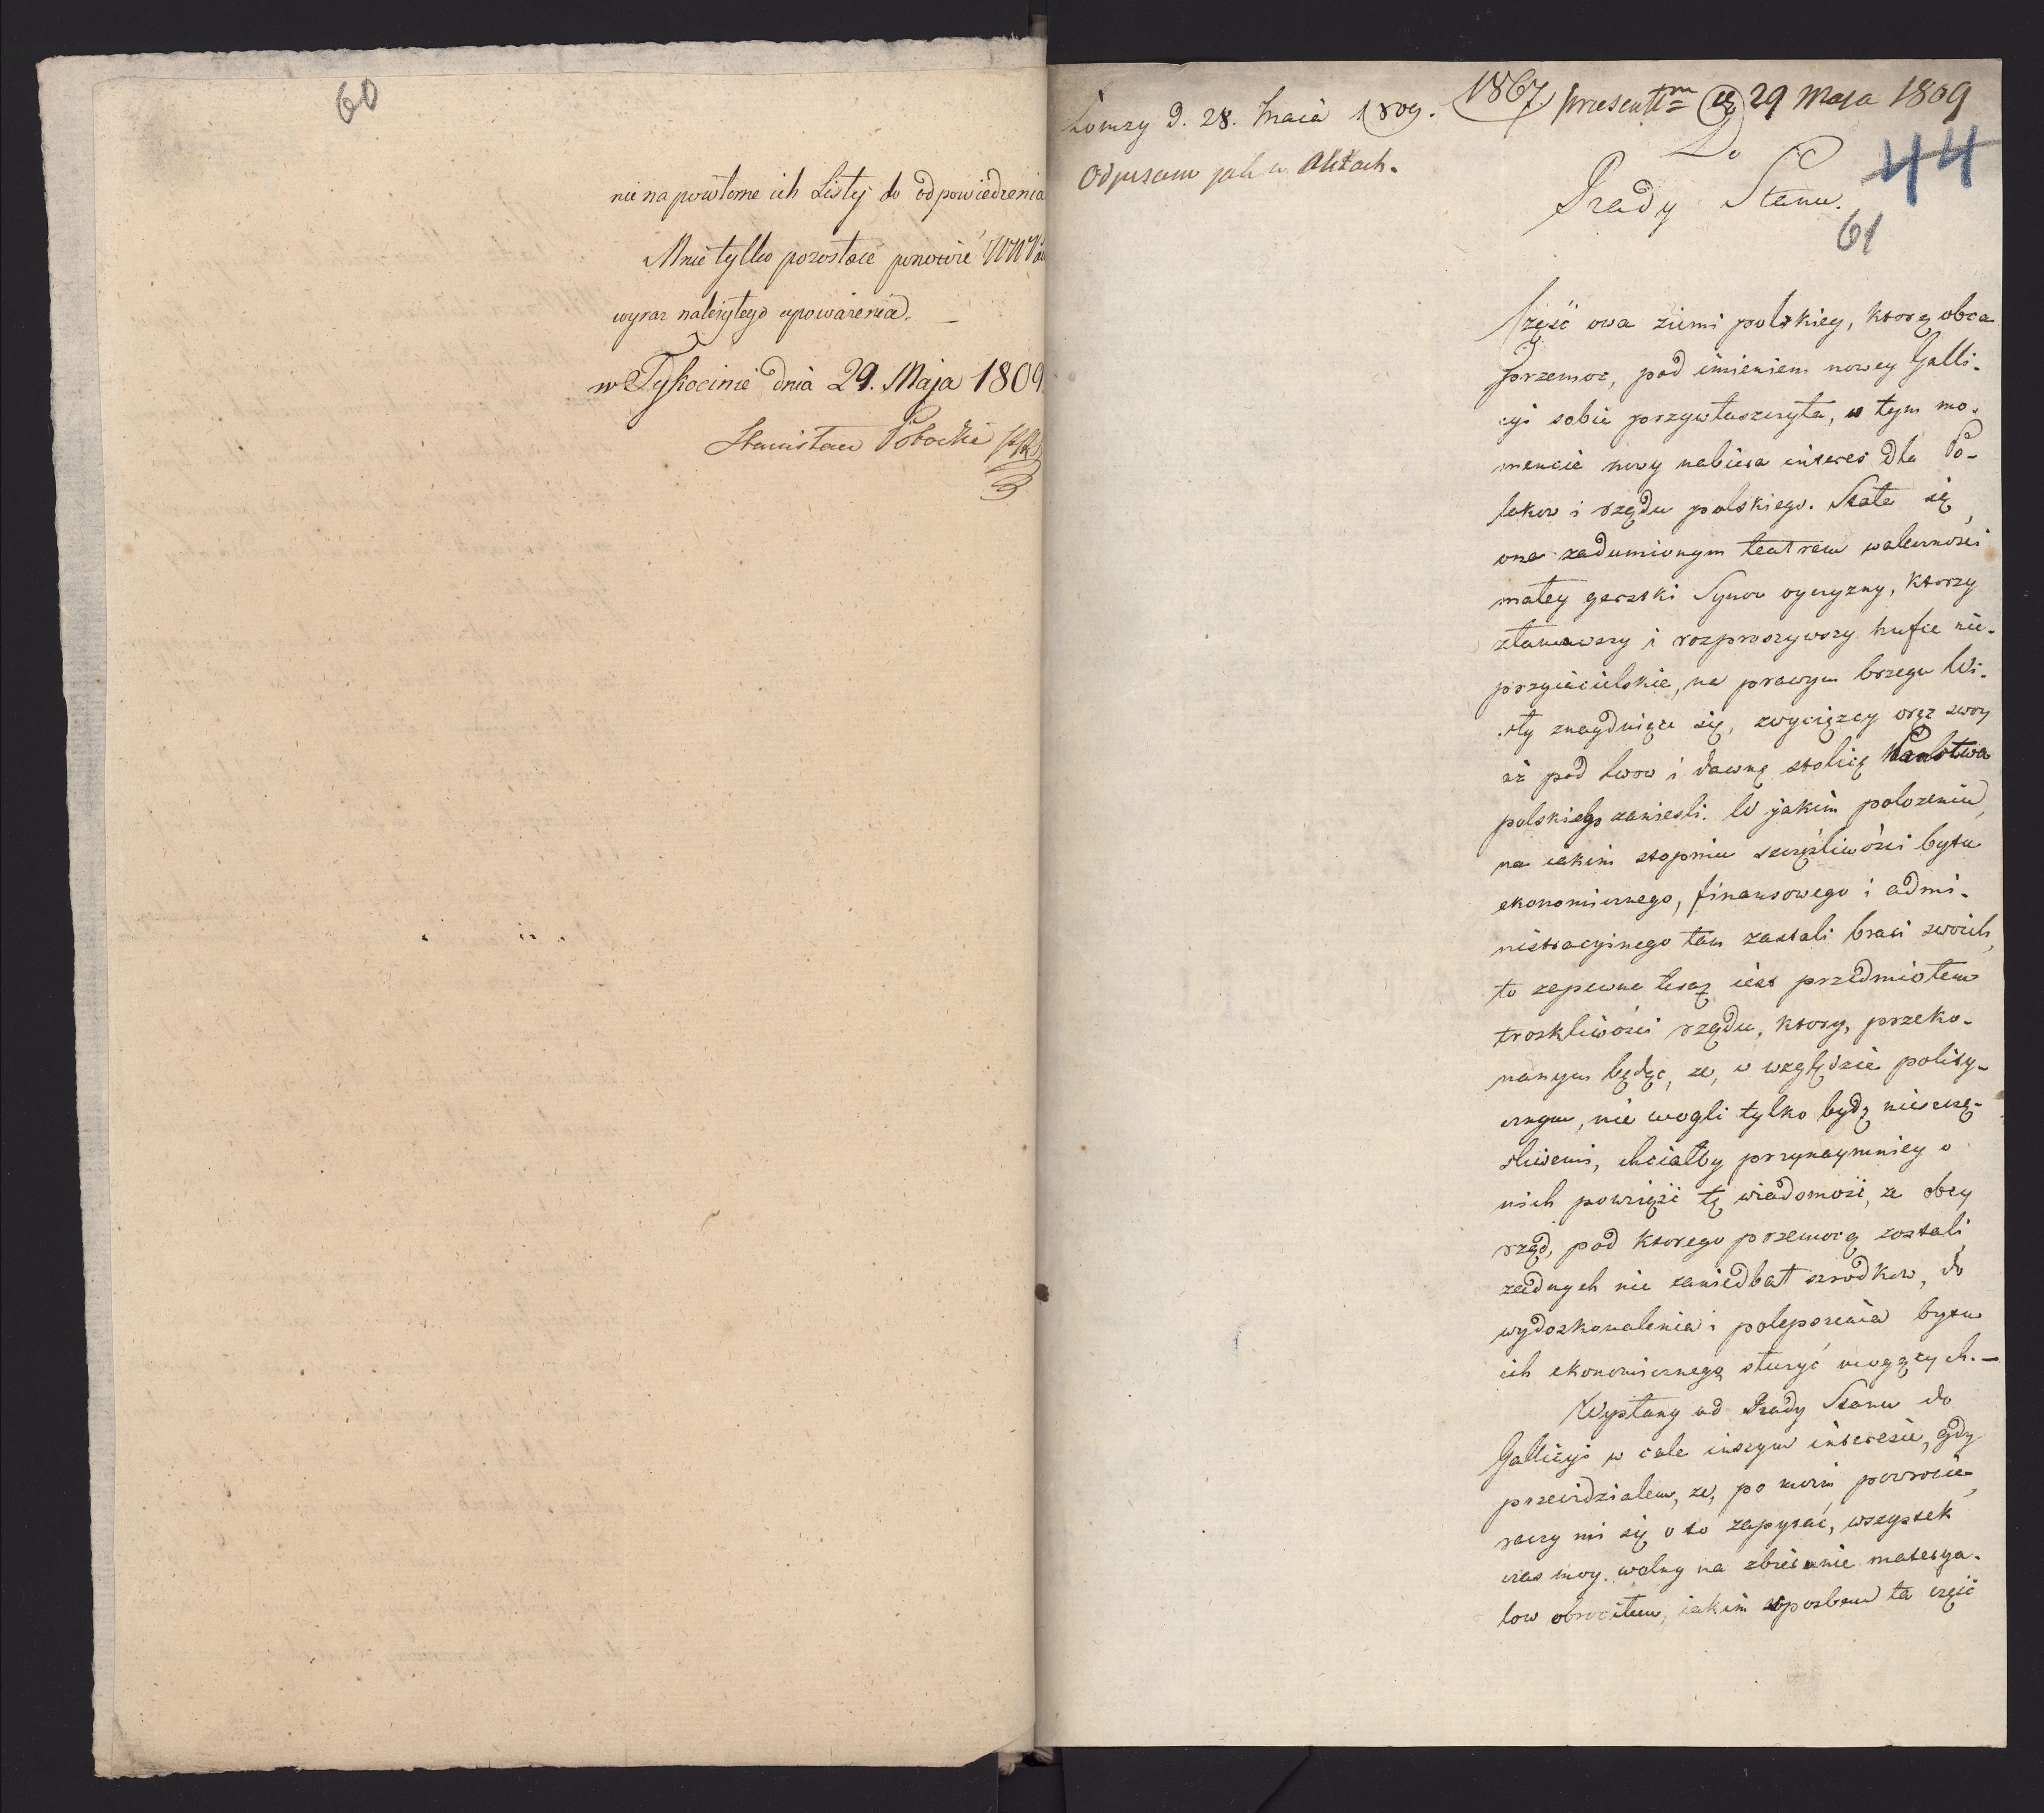 60
nie na powtorne ich Listy do odpowiedzenia
Mnie tylko pozostaie ponowić
wyraz należytego upoważenia. —
w Tykocinie dnia 29. Maja 1809
Stanisław Potocki
Łomzy d. 28. Maia 1809.
1867 praesent 29 Maja 1809
Odpisano jak w Aktach.
Do
Rady Stanu.
44
61
Część owa ziemi polskiey, którą obca
przemoc, pod imieniem nowey Galli-
cyi sobie przywłaszczyła, w tym mo-
mencie nowy nabiera interes dla Po-
lakow i rządu polskiego. Stała się
ona zadumionym teatrem waleczności
małey garstki Synow oyczyzny, ktorzy
złamawszy i rozproszywszy hufce nie-
przyiacielskie, na prawym brzegu Wi-
sły znayduiące się, zwycięzcy oręż swoy
aż pod Lwow i dawną stolicę Państwa
polskiego zanieśli. W jakim położeniu,
na iakim stopniu szczęśliwości bytu
ekonomicznego, finansowego i admi-
nistracyinego tam zastali braci swoich,
to zapewne teraz iest przedmiotem
troskliwości rządu, ktory, przeko-
nanym będąc, że, w względzie polity-
cznym, nie mogli tylko bydź nieszczę-
śliwemi, chciałby przynaymniey o
nich powziąść tę wiadomość, że obcy
rząd, pod ktorego przemocą zostali,
żadnych nie zaniedbał srzodkow, do
wydoskonalenia i polepszenia bytu
ich ekonomicznego służyć mogących. —
Wysłany od Rady Stanu do
Gallicyi w cale inszym interesie, gdy
przewidziałem, że, po moim powrocie,
raczy mi się o to zapytać, wszystek
czas moy wolny na zbieranie materya-
łow obrociłem, iakim sposobem ta część